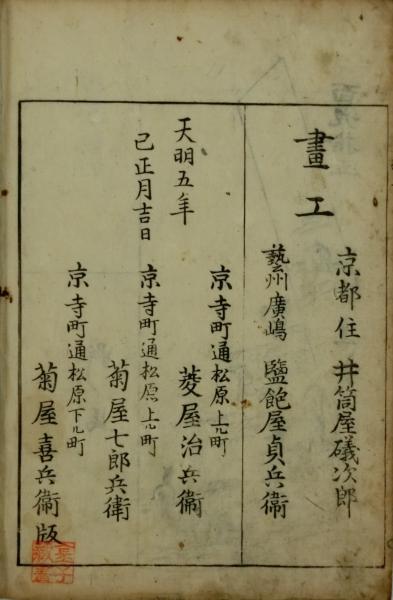 畫工
京都住 井筒屋礒次郎
藝州廣嶋 鹽飽屋貞兵衞
天明五年
己正月吉日
京寺町通松原上ル町
菱屋治兵衞
京寺町通松原上ル町
菊屋七郎兵衛
京寺町通松原下ル町
菊屋喜兵衞版